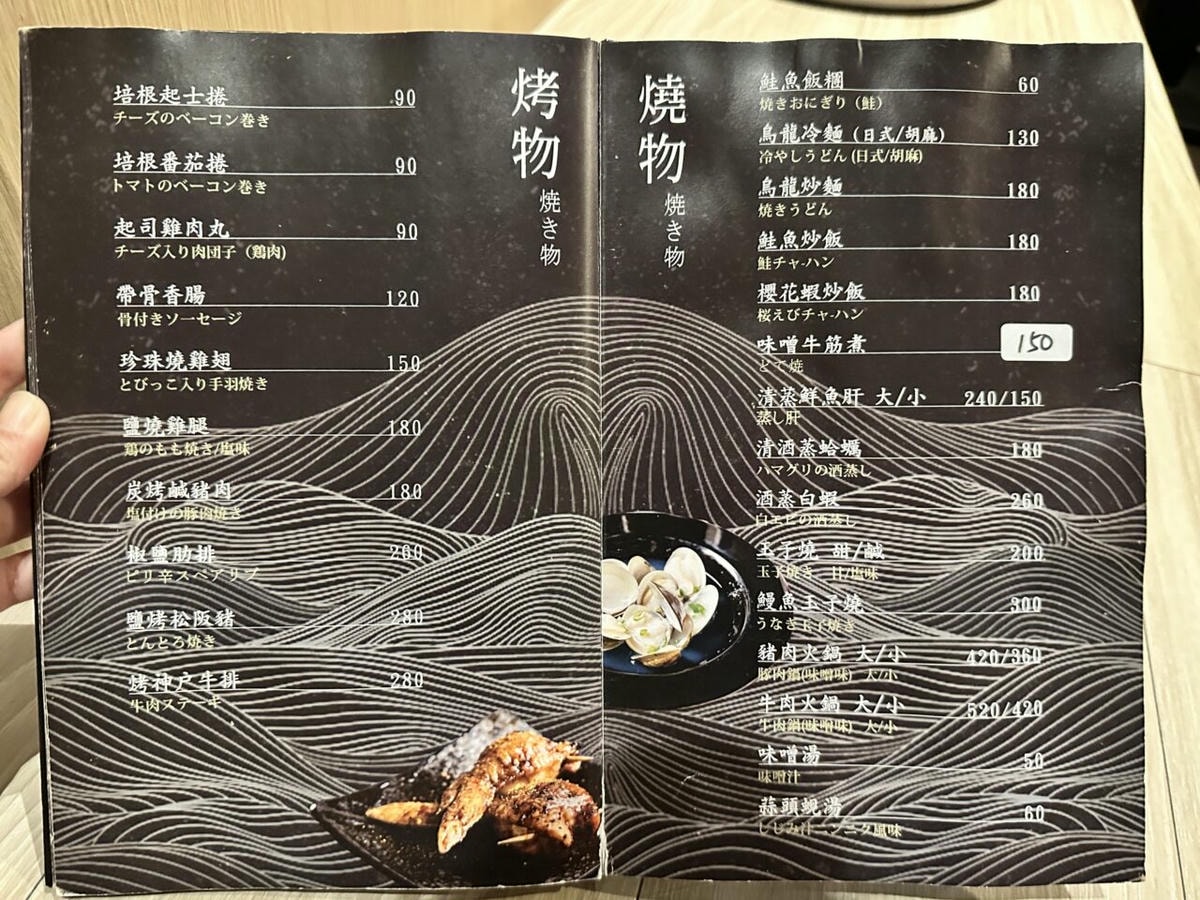 烤物
焼き物
培根起士捲 90
チーズのベーコン巻き
培根番茄捲 90
トマトのベーコン巻き
起司雞肉丸 90
チーズ入り肉団子（鶏肉)
帶骨香腸 120
骨付きソーセージ
珍珠燒雞翅 150
とびっこ入り手羽焼き
鹽燒雞腿 180
鶏のもも焼き/塩味
炭烤鹹豬肉 180
塩付けの豚肉焼き
椒鹽肋排 260
ピリ辛スペアリブ
鹽烤松阪豬 280
とんとろ焼き
烤神戶牛排 280
牛肉ステーキ
燒物
焼き物
鮭魚飯糰 60
焼きおにぎり（鮭）
烏龍冷麵（日式/胡麻） 130
冷やしうどん (日式/胡麻)
烏龍炒麵 180
焼きうどん
鮭魚炒飯 180
鮭チャーハン
櫻花蝦炒飯 180
桜えびチャーハン
味噌牛筋煮 150
どて焼
清蒸鮮魚肝 大/小 240/150
蒸し肝
清酒蒸蛤蠣 180
ハマグリの酒蒸し
酒蒸白蝦 260
白エビの酒蒸し
玉子燒 甜/鹹 200
玉子焼き 甘/塩味
鰻魚玉子燒 300
うなぎ玉子焼き
豬肉火鍋 大/小 420/360
豚肉鍋(味噌味) 大/小
牛肉火鍋 大/小 520/420
牛肉鍋(味噌味) 大/小
味噌湯 50
味噌汁
蒜頭蜆湯 60
しじみ汁ーンニク風味